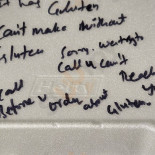 It has Gluten
Can't make without
Gluten
Sorry. We tried to
Call U can't
Reach
Call
Before u order about
Gluten.